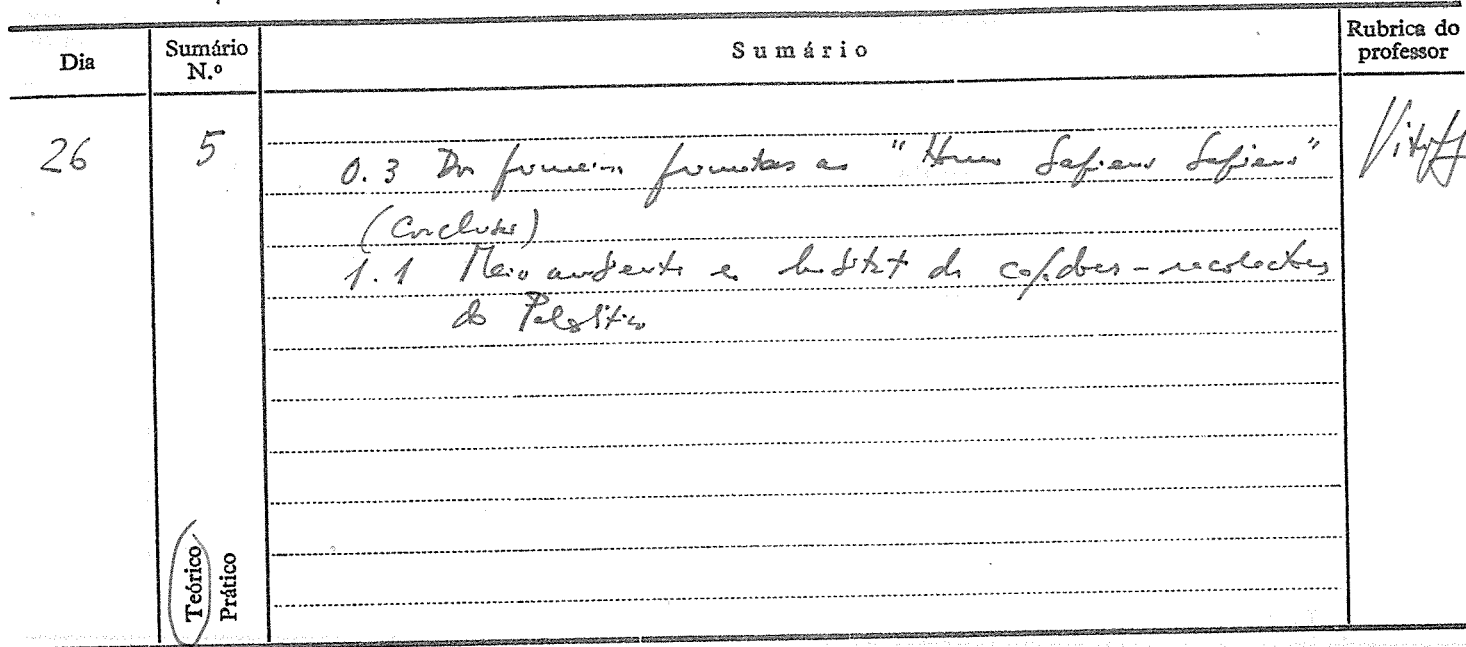 Dia
Sumário N.º
Sumário
Rubrica do professor
26
5
0.3 Dos primeiros primatas ao "Homo Sapiens Sapiens"
(Conclusão)
1.1 Meio ambiente e habitat dos caçadores-recolectores
do Paleolítico
Teórico
Prático